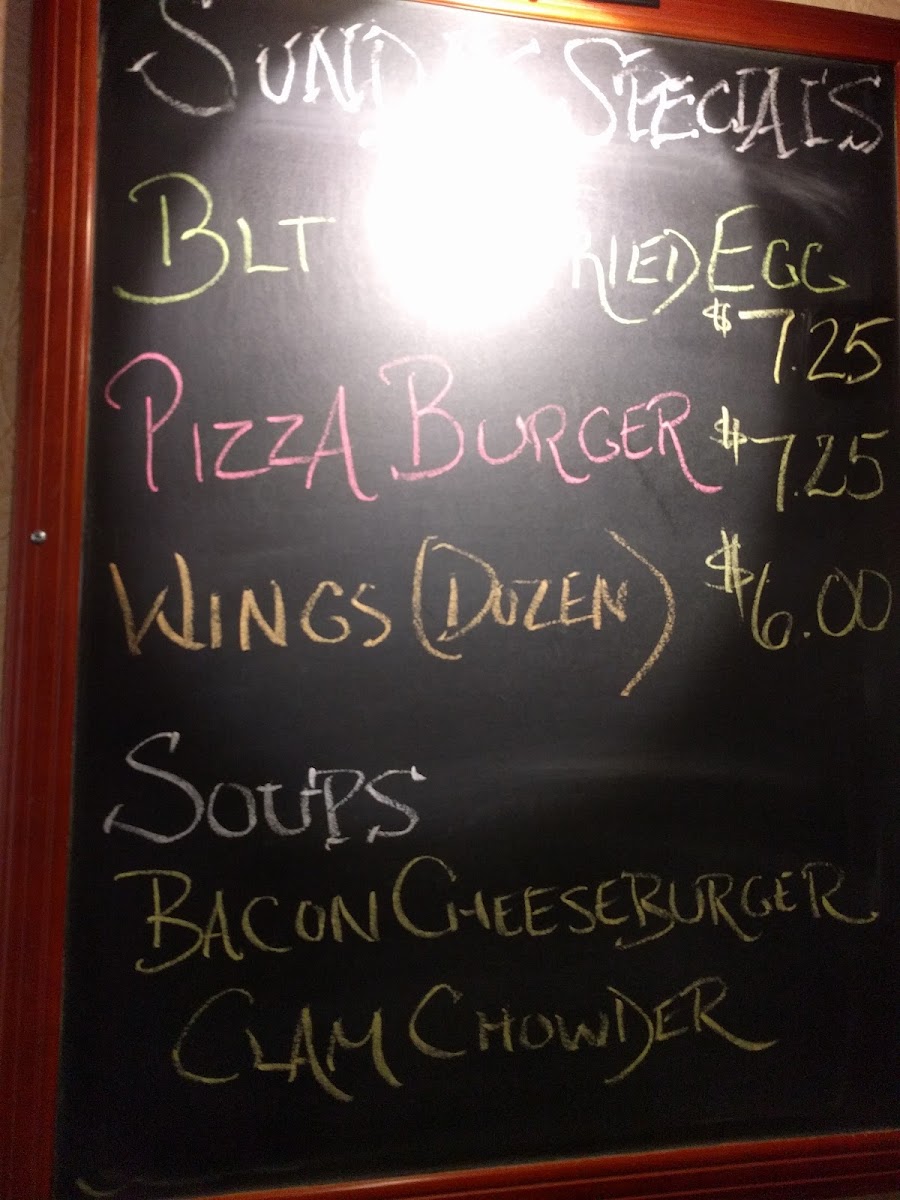 SUNDAY SPECIALS
BLT FRIED EGG
$7.25
PIZZA BURGER $7.25
WINGS (DOZEN) $6.00
SOUPS
BACON CHEESEBURGER
CLAM CHOWDER